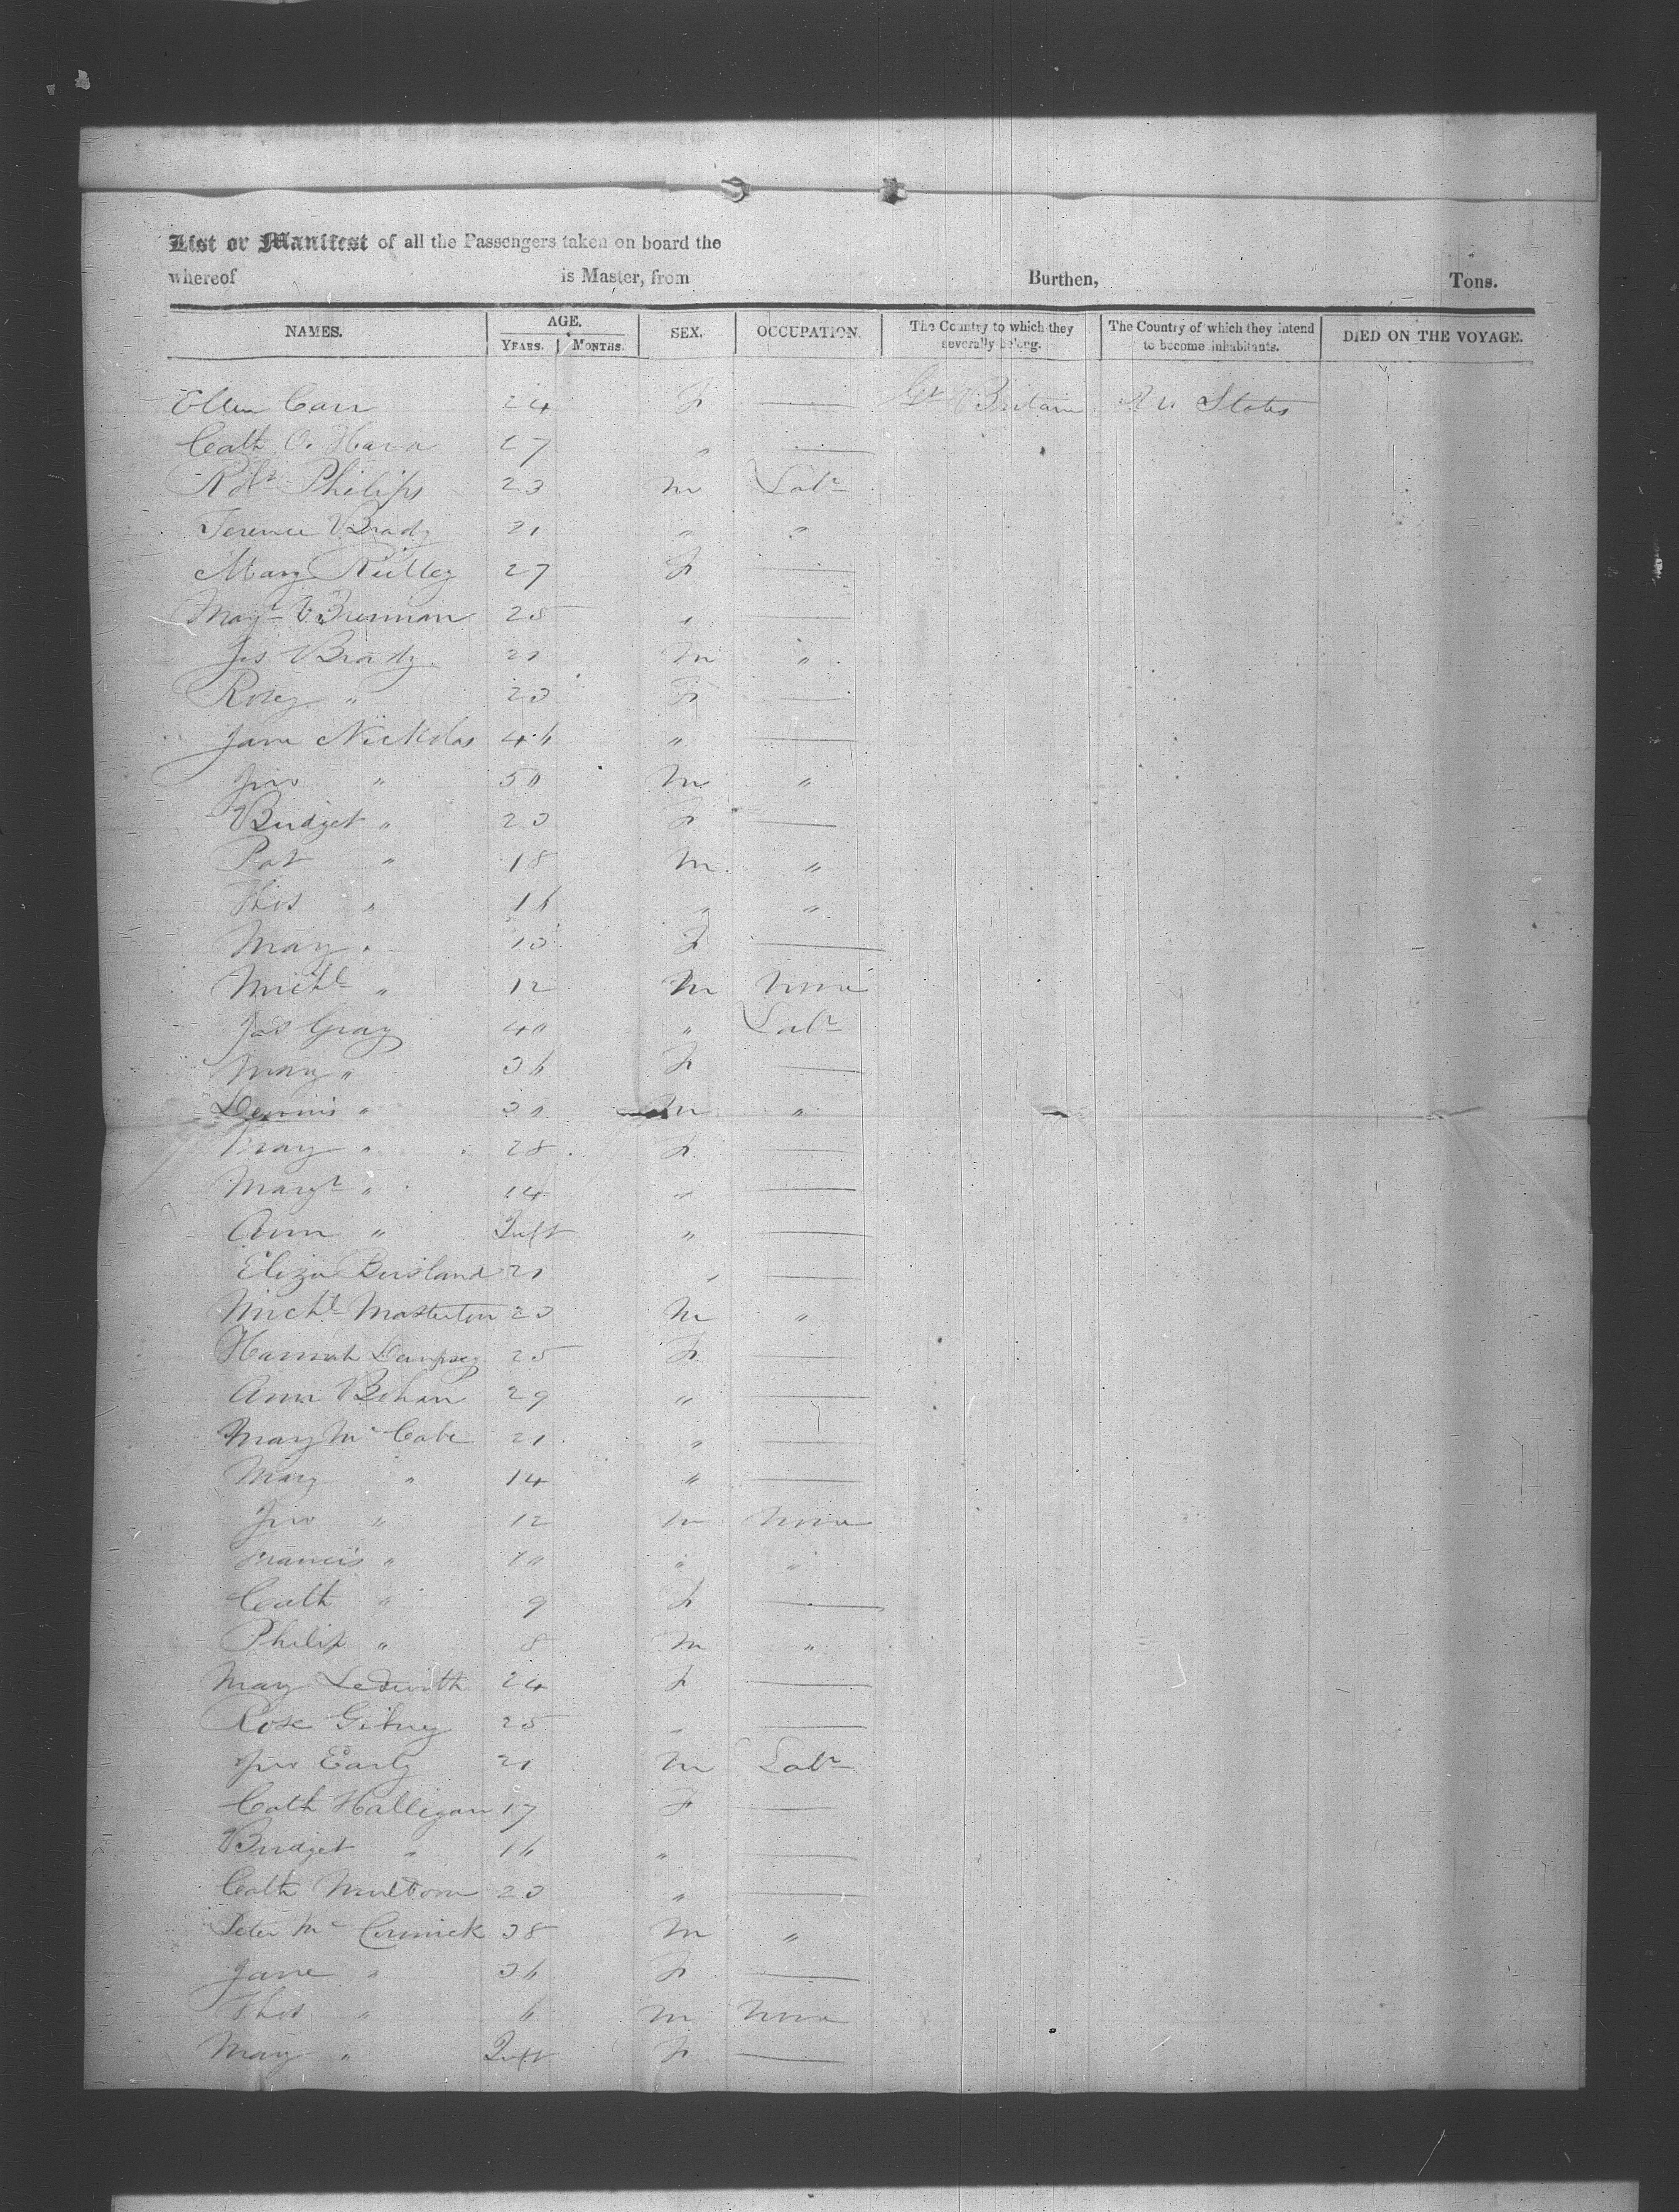 List or Manifest of all the Passengers taken on board the
whereof is Master, from Burthen, Tons.
NAMES. AGE. SEX. OCCUPATION. The Country to which they severally belong. The Country of which they intend to become inhabitants. DIED ON THE VOYAGE.
YEARS. MONTHS.
Ellen Carr 24 F — Gt Britain U States
Cath O. Hara 27 " —
Robt Philips 23 M Labr
Terence Brady 21 " "
Mary Reilley 27 F —
Margt Brennan 25 " —
Jas Brady 21 M "
Rosey " 20 F —
Jane Nickolas 46 " —
Jno " 50 M "
Bridget " 20 F —
Pat " 18 M "
Thos " 16 " "
Mary " 13 F —
Michl " 12 M None
Jas Gray 40 " Labr
Mary " 36 F —
Dennis " 30 M "
Mary " 28 F —
Margt " 14 " —
Ann " Inft " —
Eliza Birsland 21 " —
Michl Masterton 20 M "
Hannah Dempsey 25 F —
Ann Behan 29 " —
Mary Mc Cabe 21 " —
Mary " 14 " —
Jno " 12 M None
Francis " 10 " "
Cath " 9 F —
Philip " 8 M "
Mary Ledwith 24 F —
Rose Gibney 25 " —
Jno Early 21 M Labr
Cath Halligan 17 F —
Bridget " 16 " —
Cath Muldoon 20 " —
Peter Mc Cormick 38 M "
Jane " 36 F —
Thos " 6 M None
Mary " Inft F —